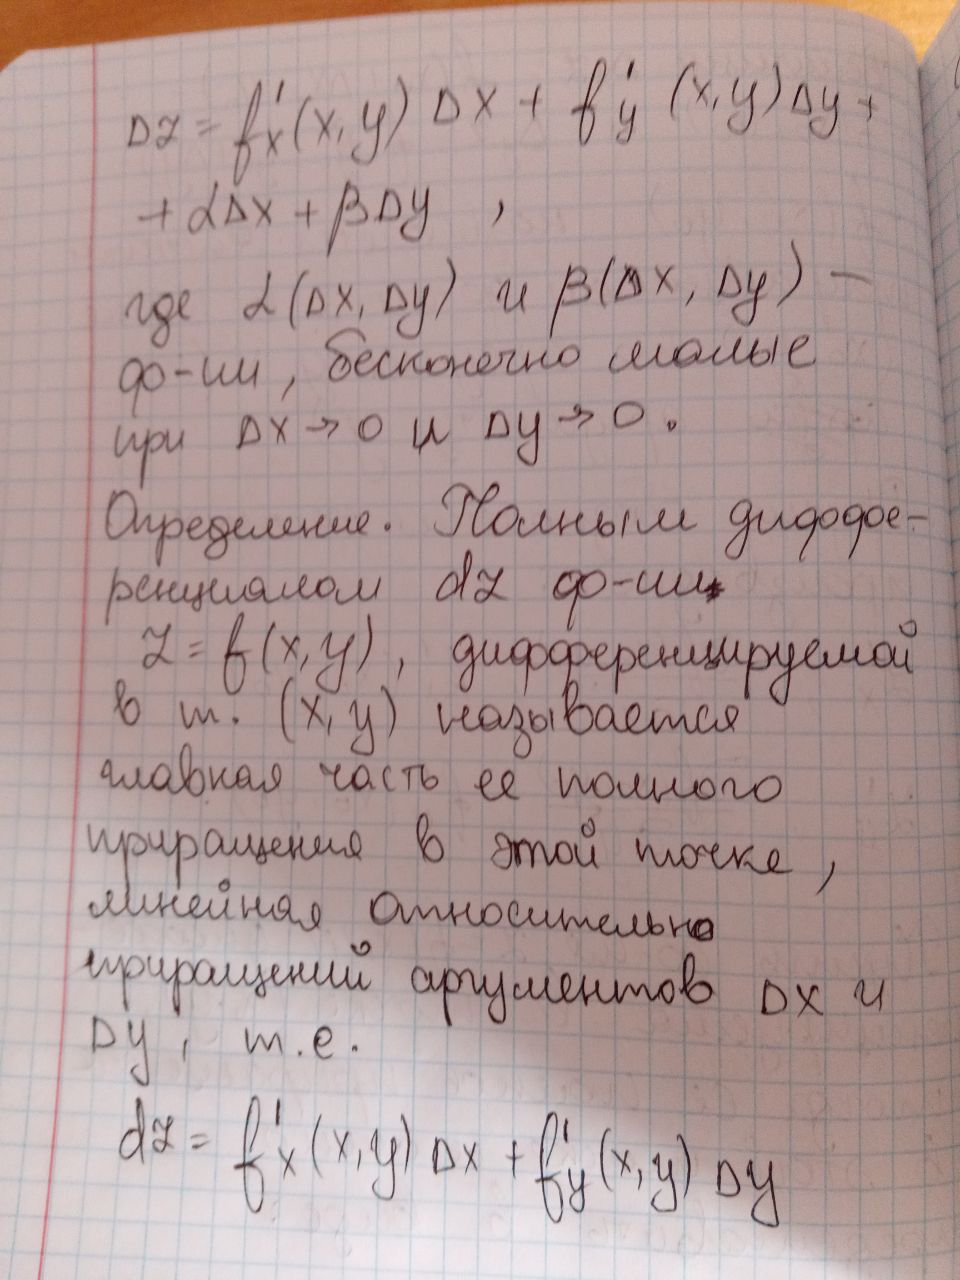 Δz = f'x(x,y) Δx + f'y (x,y)Δy +
+ αΔx + βΔy ,
где α(Δx, Δy) и β(Δx, Δy) —
ф-ии, бесконечно малые
при Δx→0 и Δy→0.
Определение. Полным диффе-
ренциалом dz ф-ии
z = f(x,y), дифференцируемой
в т. (x,y) называется
главная часть ее полного
приращения в этой точке,
линейная относительно
приращений аргументов Δx и
Δy, т.е.
dz = f'x(x,y) Δx + f'y(x,y) Δy